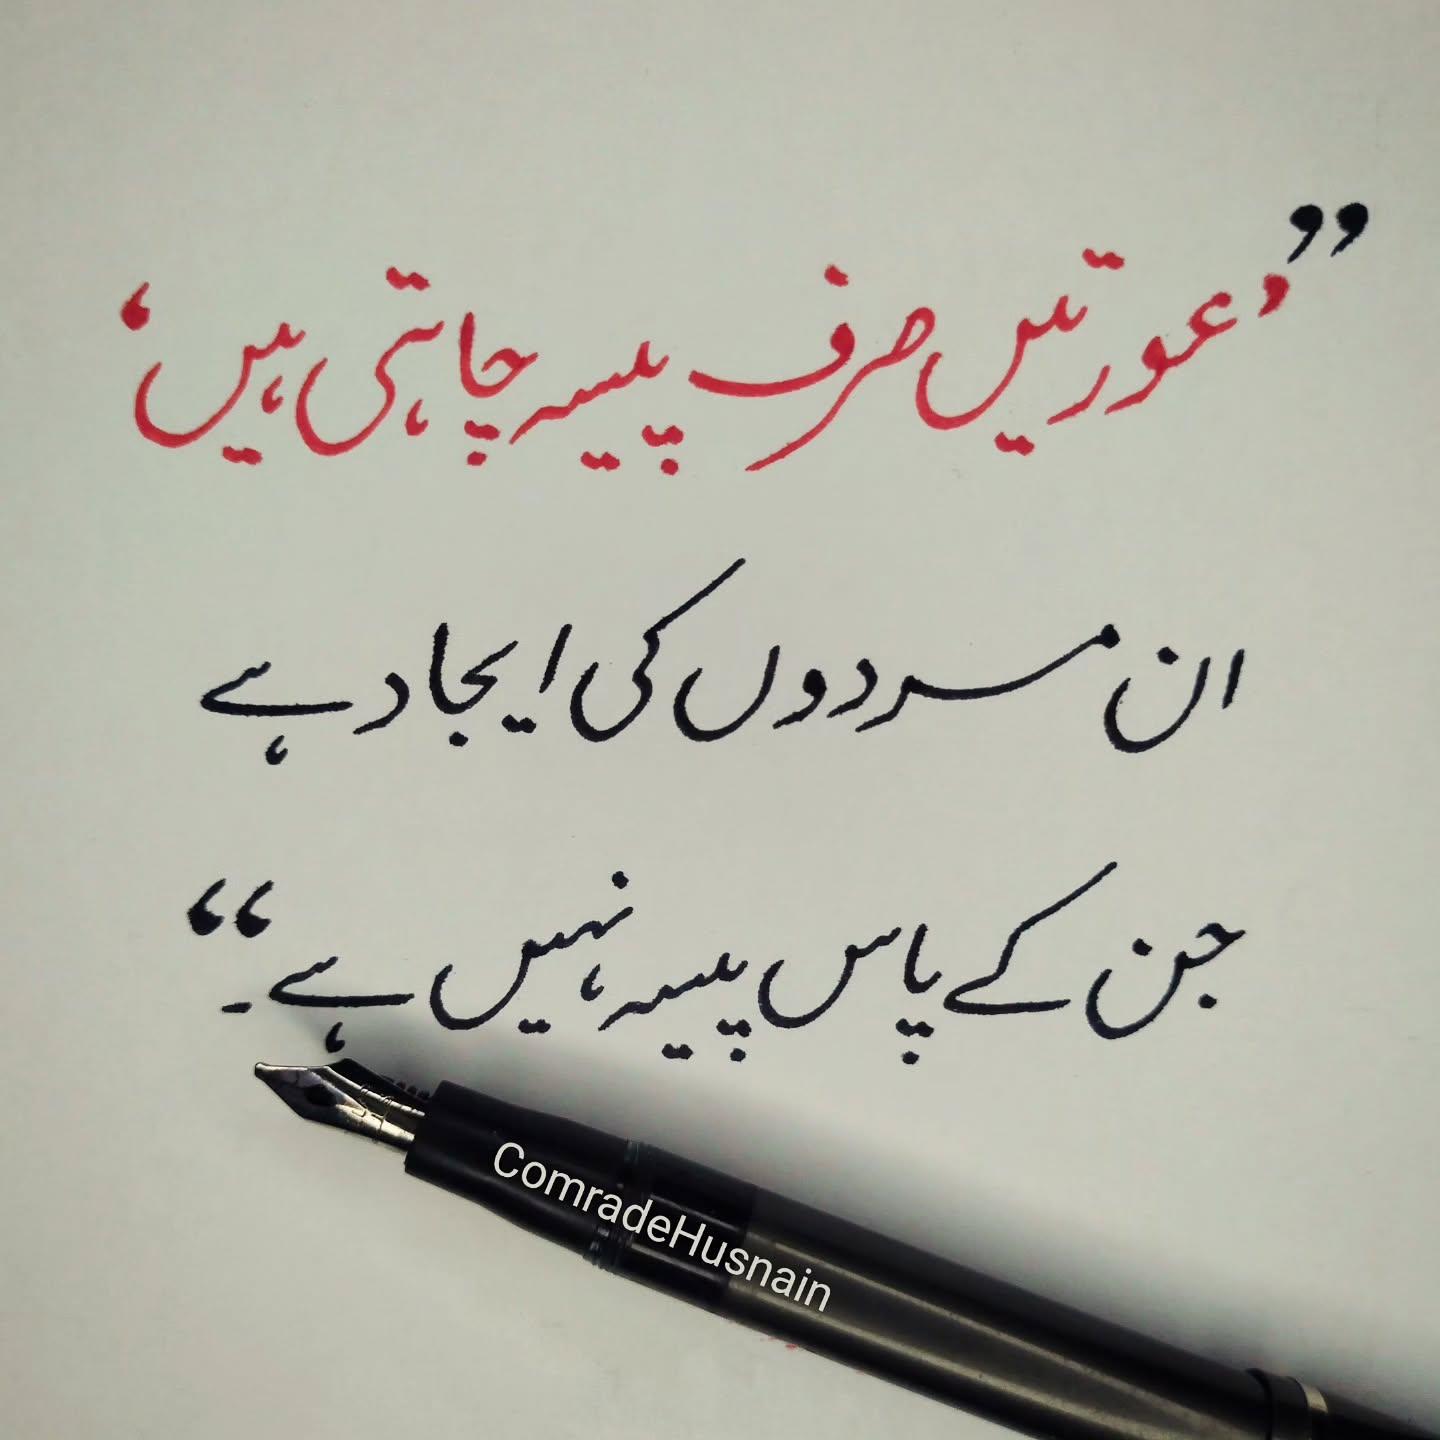 ”’عورتیں صرف پیسہ چاہتی ہیں‘
ان مردوں کی ایجاد ہے
جن کے پاس پیسہ نہیں ہے۔“
ComradeHusnain